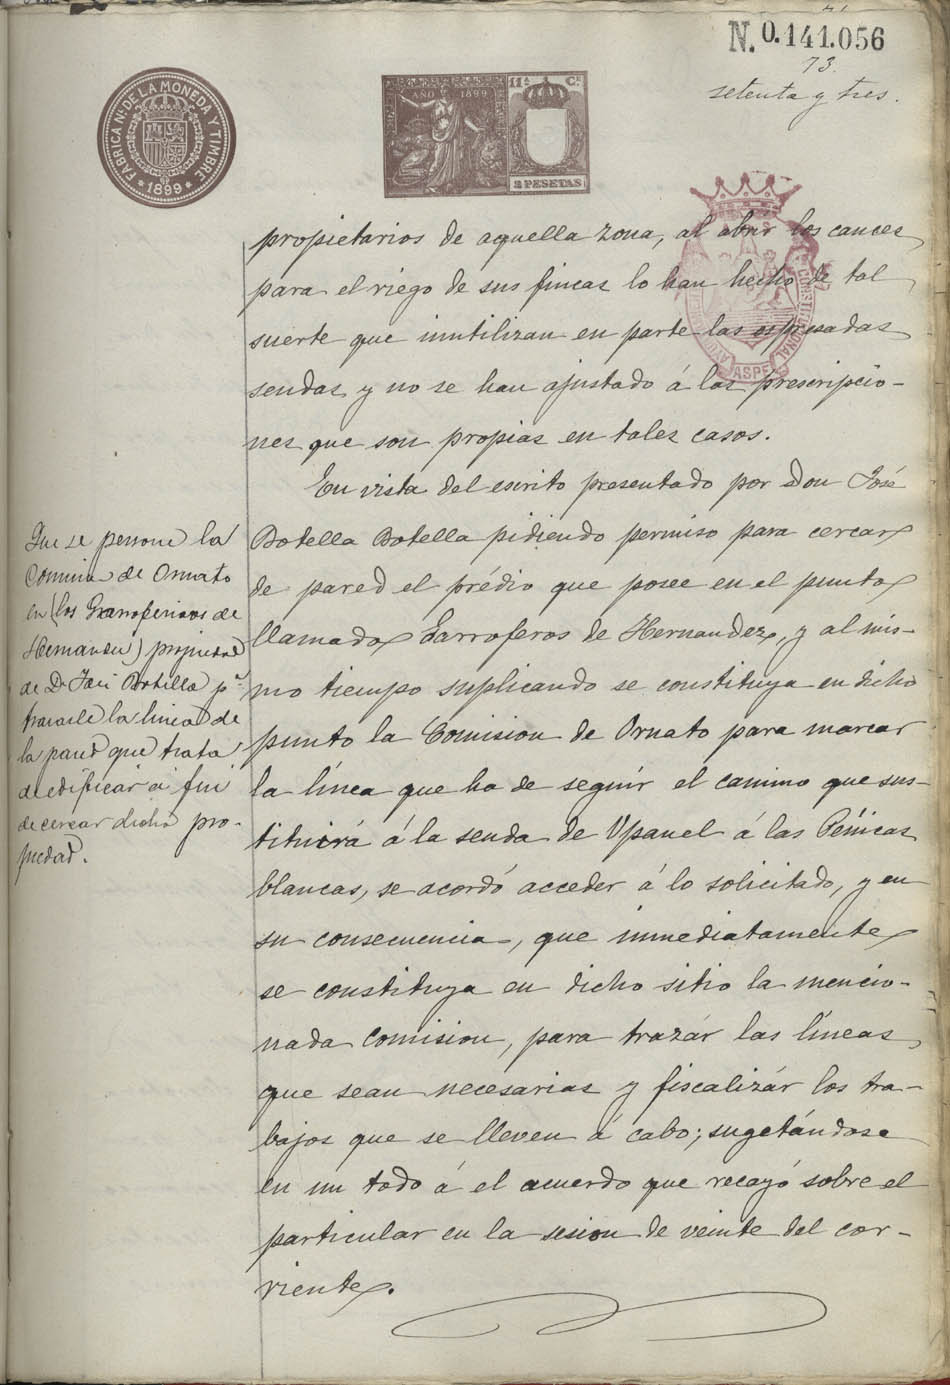 N. 0.141.056
73.
setenta y tres.
FABRICA N. DE LA MONEDA Y TIMBRE
* 1899 *
AÑO 1899
11.a Ce
2 PESETAS
CONSTITUCIONAL
ASPE
propietarios de aquella zona, al abrir los cauces
para el riégo de sus fincas lo han hecho de tal
suerte que inutilizan en parte las espresadas
sendas y no se han ajustado á las prescripcio-
nes que son propias en tales casos.
En vista del escrito presentado por Don José
Botella Botella pidiendo permiso para cercar
de pared el prédio que posee en el punto
llamado Garroferos de Hernandez, y al mis-
mo tiempo suplicando se constituya en dicho
punto la Comision de Ornato para marcar
la línea que ha de seguir el camino que sus-
tituirá á la senda de Upanel á las Peñicas
blancas, se acordó acceder á lo solicitado, y en
su consecuencia, que inmediatamente
se constituya en dicho sitio la mencio-
nada Comision, para trazár las líneas
que sean necesarias y fiscalizár los tra-
bajos que se lleven á cabo; sugetándose
en un todo á el acuerdo que recayó sobre el
particular en la sesion de veinte del cor-
riente.
Que se persone la
Comision de Ornato
en (los Garrofericos de
Hernandez) propiedad
de Dn José Botella pa
trazarle la linea de
la pared que trata
de edificar á fin
de cercar dicha pro-
piedad.